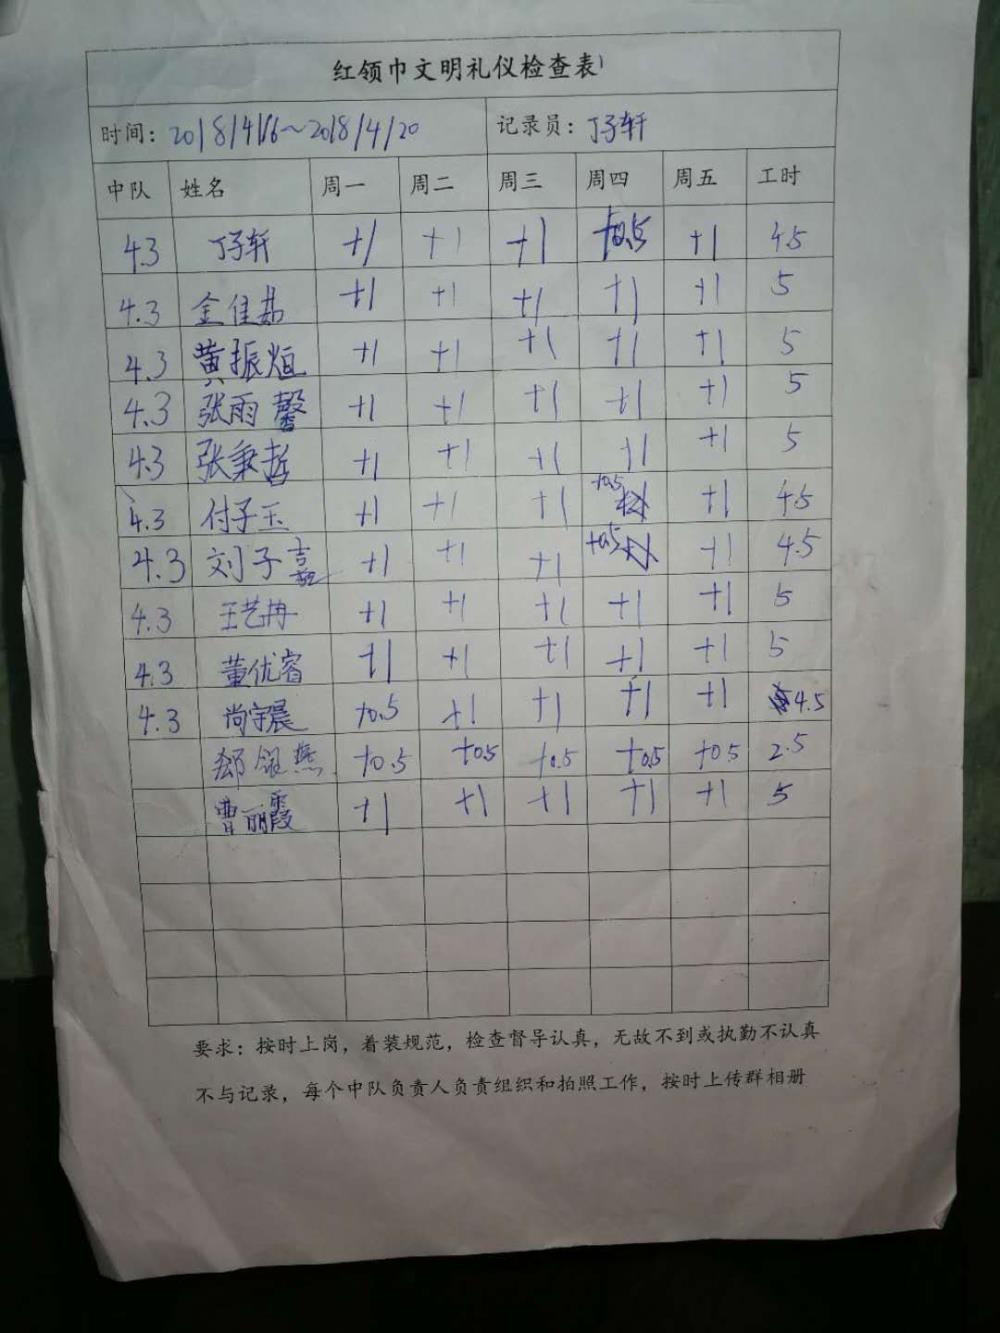 红领巾文明礼仪检查表
时间：2018/4/16～2018/4/20 记录员：丁子轩
中队 姓名 周一 周二 周三 周四 周五 工时
4.3 丁子轩 +1 +1 +1 +0.5 +1 4.5
4.3 金佳茹 +1 +1 +1 +1 +1 5
4.3 黄振烜 +1 +1 +1 +1 +1 5
4.3 张雨馨 +1 +1 +1 +1 +1 5
4.3 张秉哲 +1 +1 +1 +1 +1 5
4.3 付子玉 +1 +1 +1 +0.5 +1 4.5
4.3 刘子 +1 +1 +1 +0.5 +1 4.5
4.3 王艺冉 +1 +1 +1 +1 +1 5
4.3 董优睿 +1 +1 +1 +1 +1 5
4.3 尚宇晨 +0.5 +1 +1 +1 +1 4.5
郄银燕 +0.5 +0.5 +0.5 +0.5 +0.5 2.5
曹丽霞 +1 +1 +1 +1 +1 5
要求：按时上岗，着装规范，检查督导认真，无故不到或执勤不认真
不与记录，每个中队负责人负责组织和拍照工作，按时上传群相册